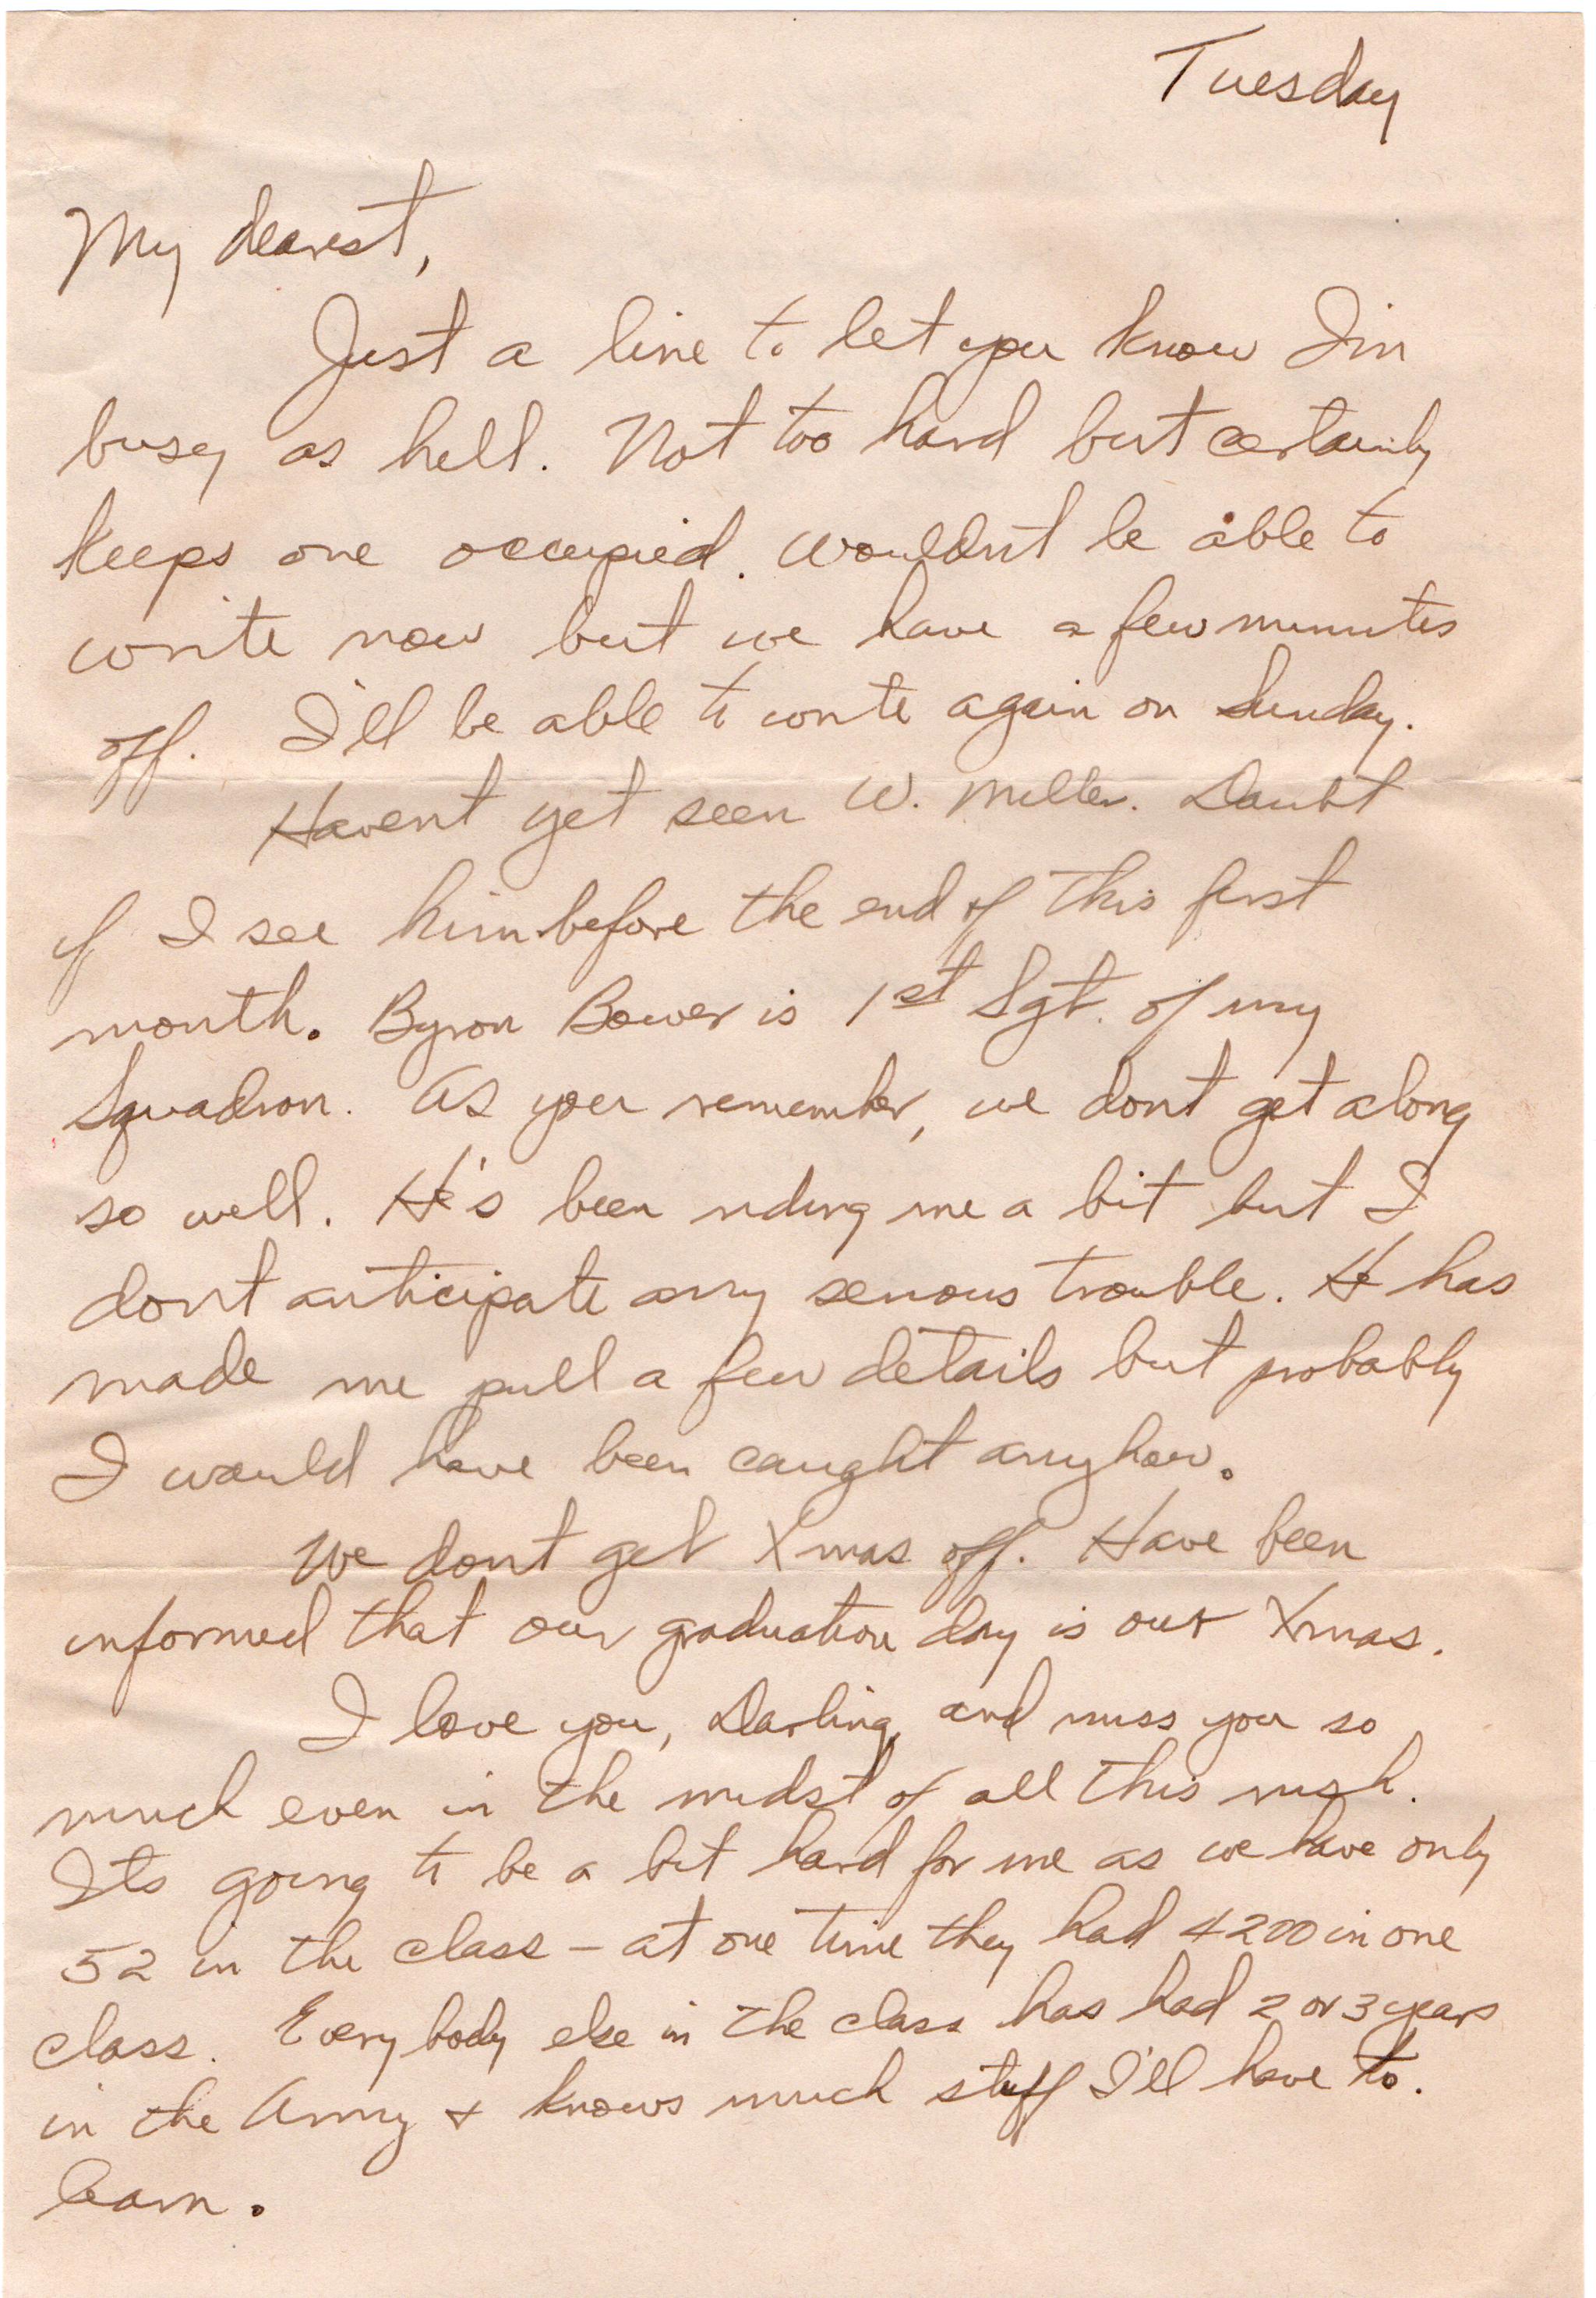 Tuesday
My dearest,
Just a line to let you know I'm
busy as hell. Not too hard but certainly
keeps one occupied. Wouldn't be able to
write now but we have a few minutes
off. I'll be able to write again on Sunday.
Havent yet seen W. Miller. Doubt
if I see him before the end of this first
month. Byron Bower is 1st Sgt. of my
Squadron. As you remember, we dont get along
so well. He's been riding me a bit but I
don't anticipate any serious trouble. He has
made me pull a few details but probably
I would have been caught anyhow.
We dont get Xmas off. Have been
informed that our graduation day is our Xmas.
I love you, Darling, and miss you so
much even in the midst of all this rush.
Its going to be a bit hard for me as we have only
52 in the class – at one time they had 4200 in one
class. Everybody else in the class has had 2 or 3 years
in the Army & knows much stuff I'll have to.
learn.